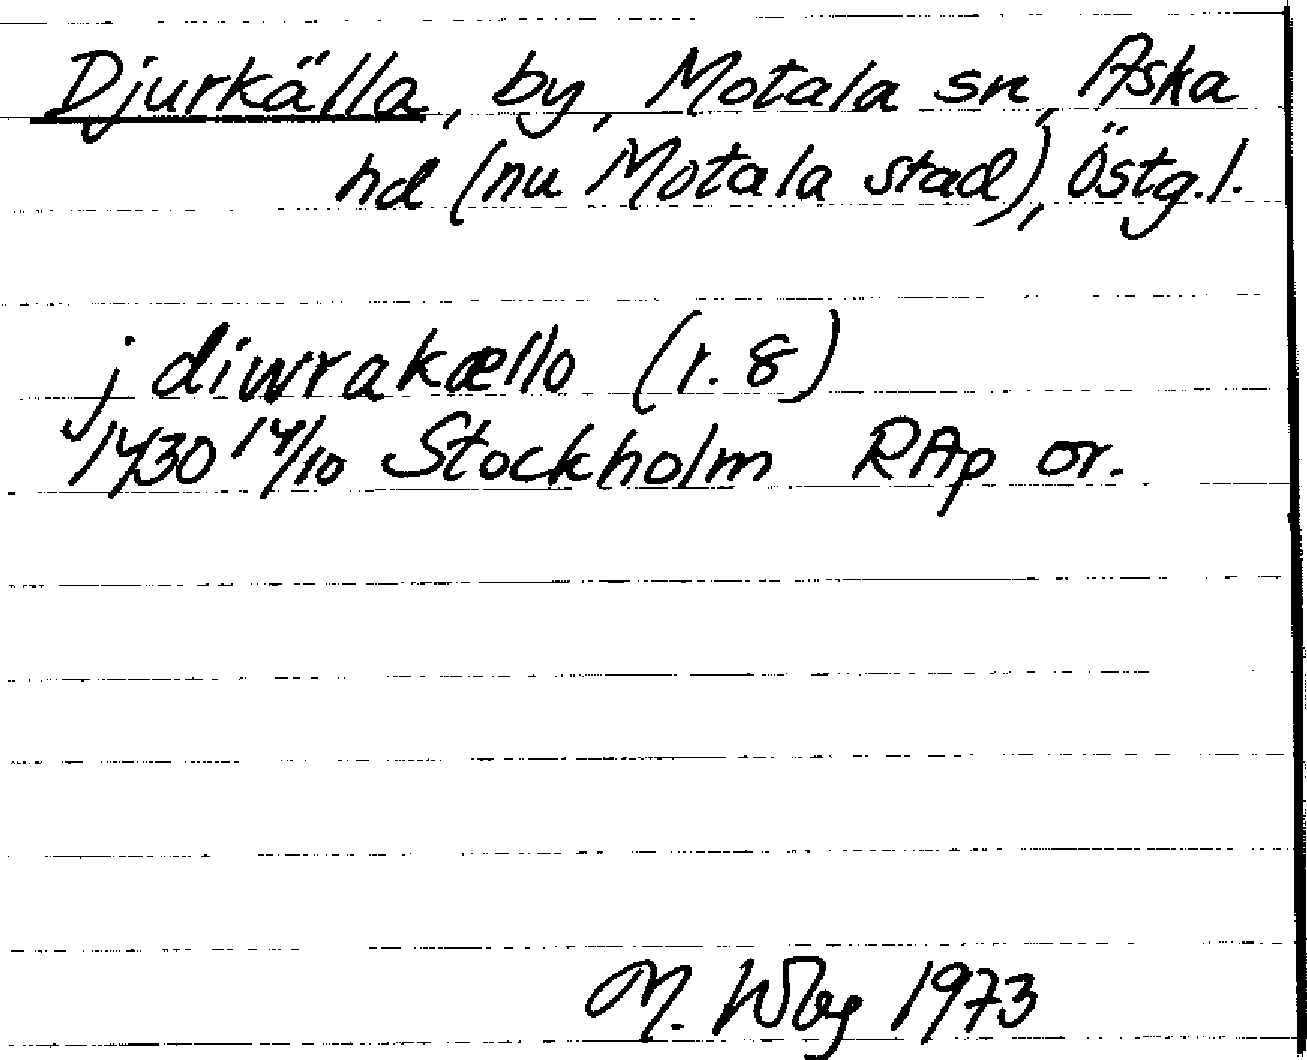 Djurkälla, by, Motala sn, Aska
hd (nu Motala stad), Östg.l.
j diwrakællo (r. 8)
1430 14/10 Stockholm RAp or.
M. 1973